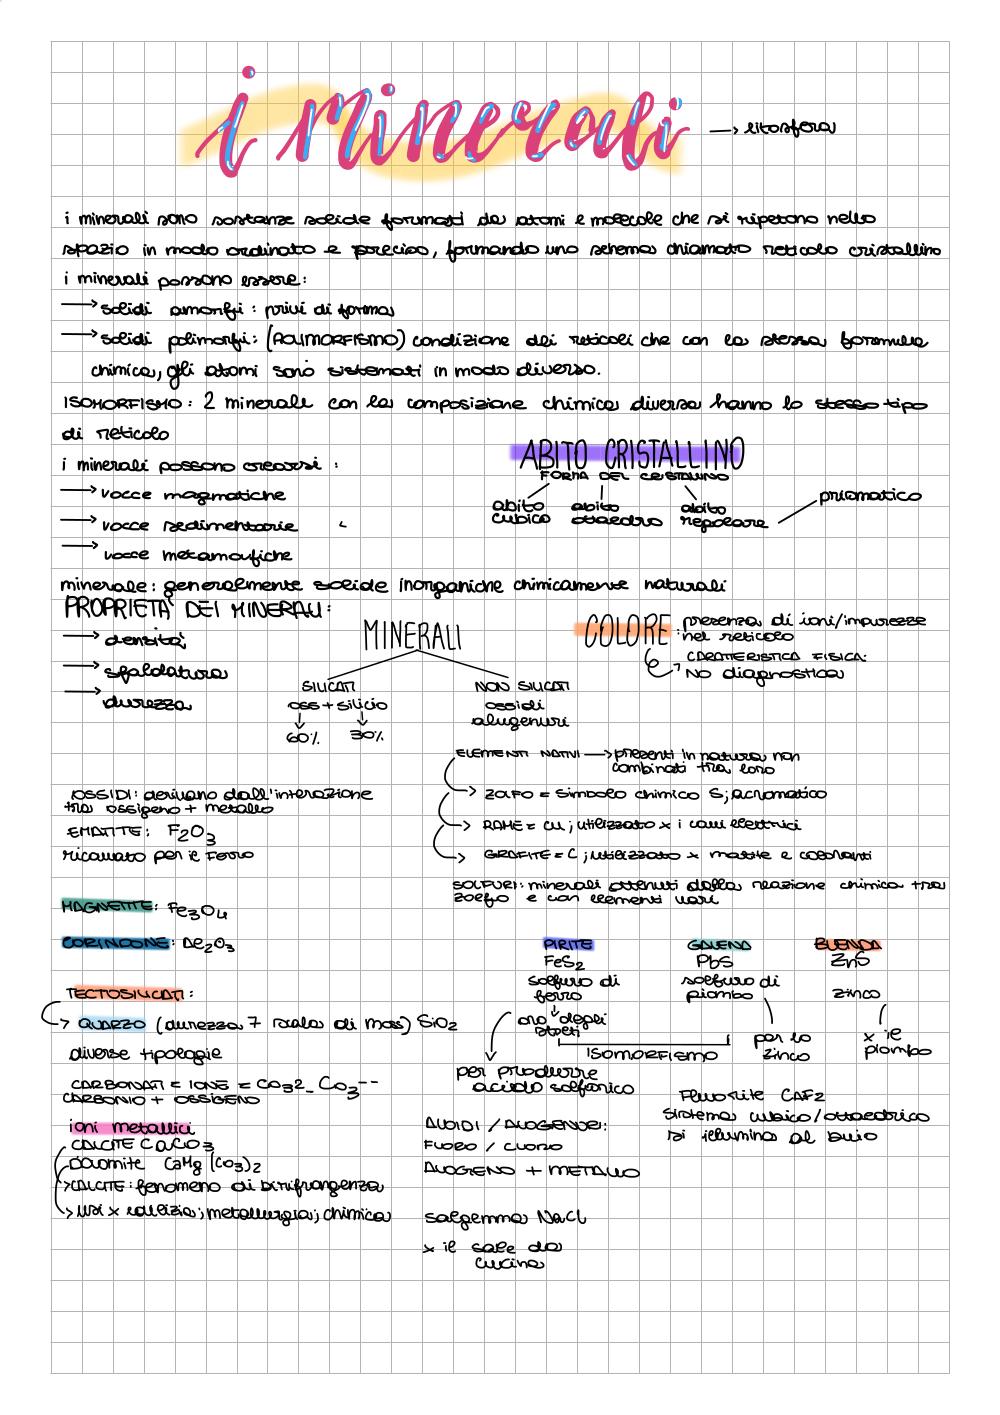 i minerali → litosfera
i minerali sono sostanze solide formati da atomi e molecole che si ripetono nello
spazio in modo ordinato e preciso, formando uno schema chiamato reticolo cristallino
i minerali possono essere:
→ solidi amorfi: privi di forma
→ solidi polimorfi: (POLIMORFISMO) condizione dei reticoli che con la stessa formula
chimica, gli atomi sono sistemati in modo diverso.
ISOMORFISMO: 2 minerale con la composizione chimica diversa hanno lo stesso tipo
di reticolo
i minerali possono crearsi:
→ rocce magmatiche
→ rocce sedimentarie
→ rocce metamorfiche
ABITO CRISTALLINO
FORMA DEL CRISTALLINO
abito cubico
abito ottaedro
abito
prismatico
minerale: generalmente solide inorganiche chimicamente naturali
PROPRIETA' DEI MINERALI:
→ densità
→ sfaldatura
→ durezza
MINERALI
SILICATI
oss + silicio
60% 30%
NON SILICATI
ossidi
alugenuri
COLORE: presenza di ioni/impurezze
nel reticolo
→ CARATTERISTICA FISICA:
NO diagnostica
ELEMENTI NATIVI → presenti in natura non
combinati tra loro
→ ZOLFO = simbolo chimico S; acromatico
→ RAME = CU; utilizzato x i cavi elettrici
→ GRAFITE = C; utilizzato x matite e coloranti
SOLFURI: minerali ottenuti dalla reazione chimica tra
zolfo e con elementi vari
OSSIDI: derivano dall'interazione
tra ossigeno + metallo
EMATITE: F2O3
ricavato per il Ferro
MAGNETITE: Fe3O4
CORINDONE: Al2O3
TECTOSILICATI:
→ QUARZO (durezza 7 scala di Mos) SiO2
diverse tipologie
CARBONATI = IONE = CO32_ CO3--
CARBONIO + OSSIGENO
ioni metallici
CALCITE CaCO3
Dolomite CaMg (CO3)2
→ CALCITE: fenomeno di birifrangenza
→ usi x edilizia; metallurgia; chimica
PIRITE
FeS2
solfuro di
ferro
oro degli
stolti
per produrre
acido solforico
GALENA
PbS
solfuro di
piombo
per lo
zinco
BLENDA
ZnS
zinco
x il
piombo
ISOMORFISMO
Fluorite CAF2
Sistema cubico/ottaedrico
si illumina al buio
ALOIDI / ALOGENURI:
FUORO / CLORO
ALOGENO + METALLO
salgemma NaCl
x il sale da
cucina